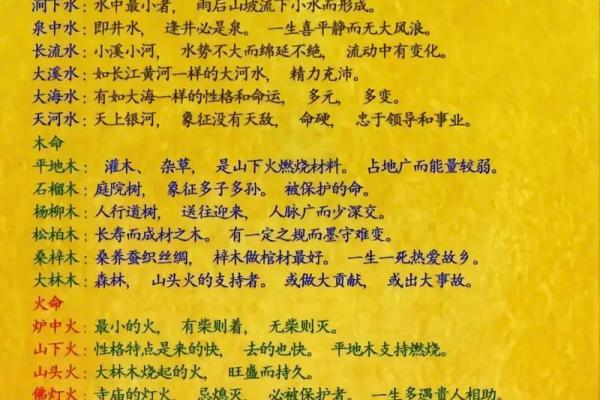 涧下水：水中最小者， 雨后山坡流下小水而形成。
泉中水：即井水， 逢井必是泉。 一生喜平静而无大风浪。
长流水：小溪小河， 水势不大而绵延不绝， 流动中有变化。
大溪水：如长江黄河一样的大河水， 精力充沛。
大海水：有如大海一样的性格和命运， 多元， 多变。
天河水：天上银河， 象征没有天敌， 命硬， 忠于领导和事业。
木命
平地木： 灌木、 杂草， 是山下火燃烧材料。 占地广而能量较弱。
石榴木：庭院树， 象征多子多孙。 被保护的命。
杨柳木：人行道树， 送往迎来， 人脉广而少深交。
松柏木：长寿而成材之木。 有一定之规而墨守难变。
桑梓木：桑养蚕织丝绸， 梓木做棺材最好。 一生一死热爱故乡。
大林木：森林， 山头火的支持者。 或做大贡献， 或出大事故。
火命
炉中火：最小的火， 有柴则着， 无柴则灭。
山下火：性格特点是来的快， 去的也快。 平地木支持燃烧。
山头火：大林木烧起的火， 旺盛而持久。
佛灯火：寺庙的灯火， 忌熄灭， 必被保护者。 一生多遇贵人相助。